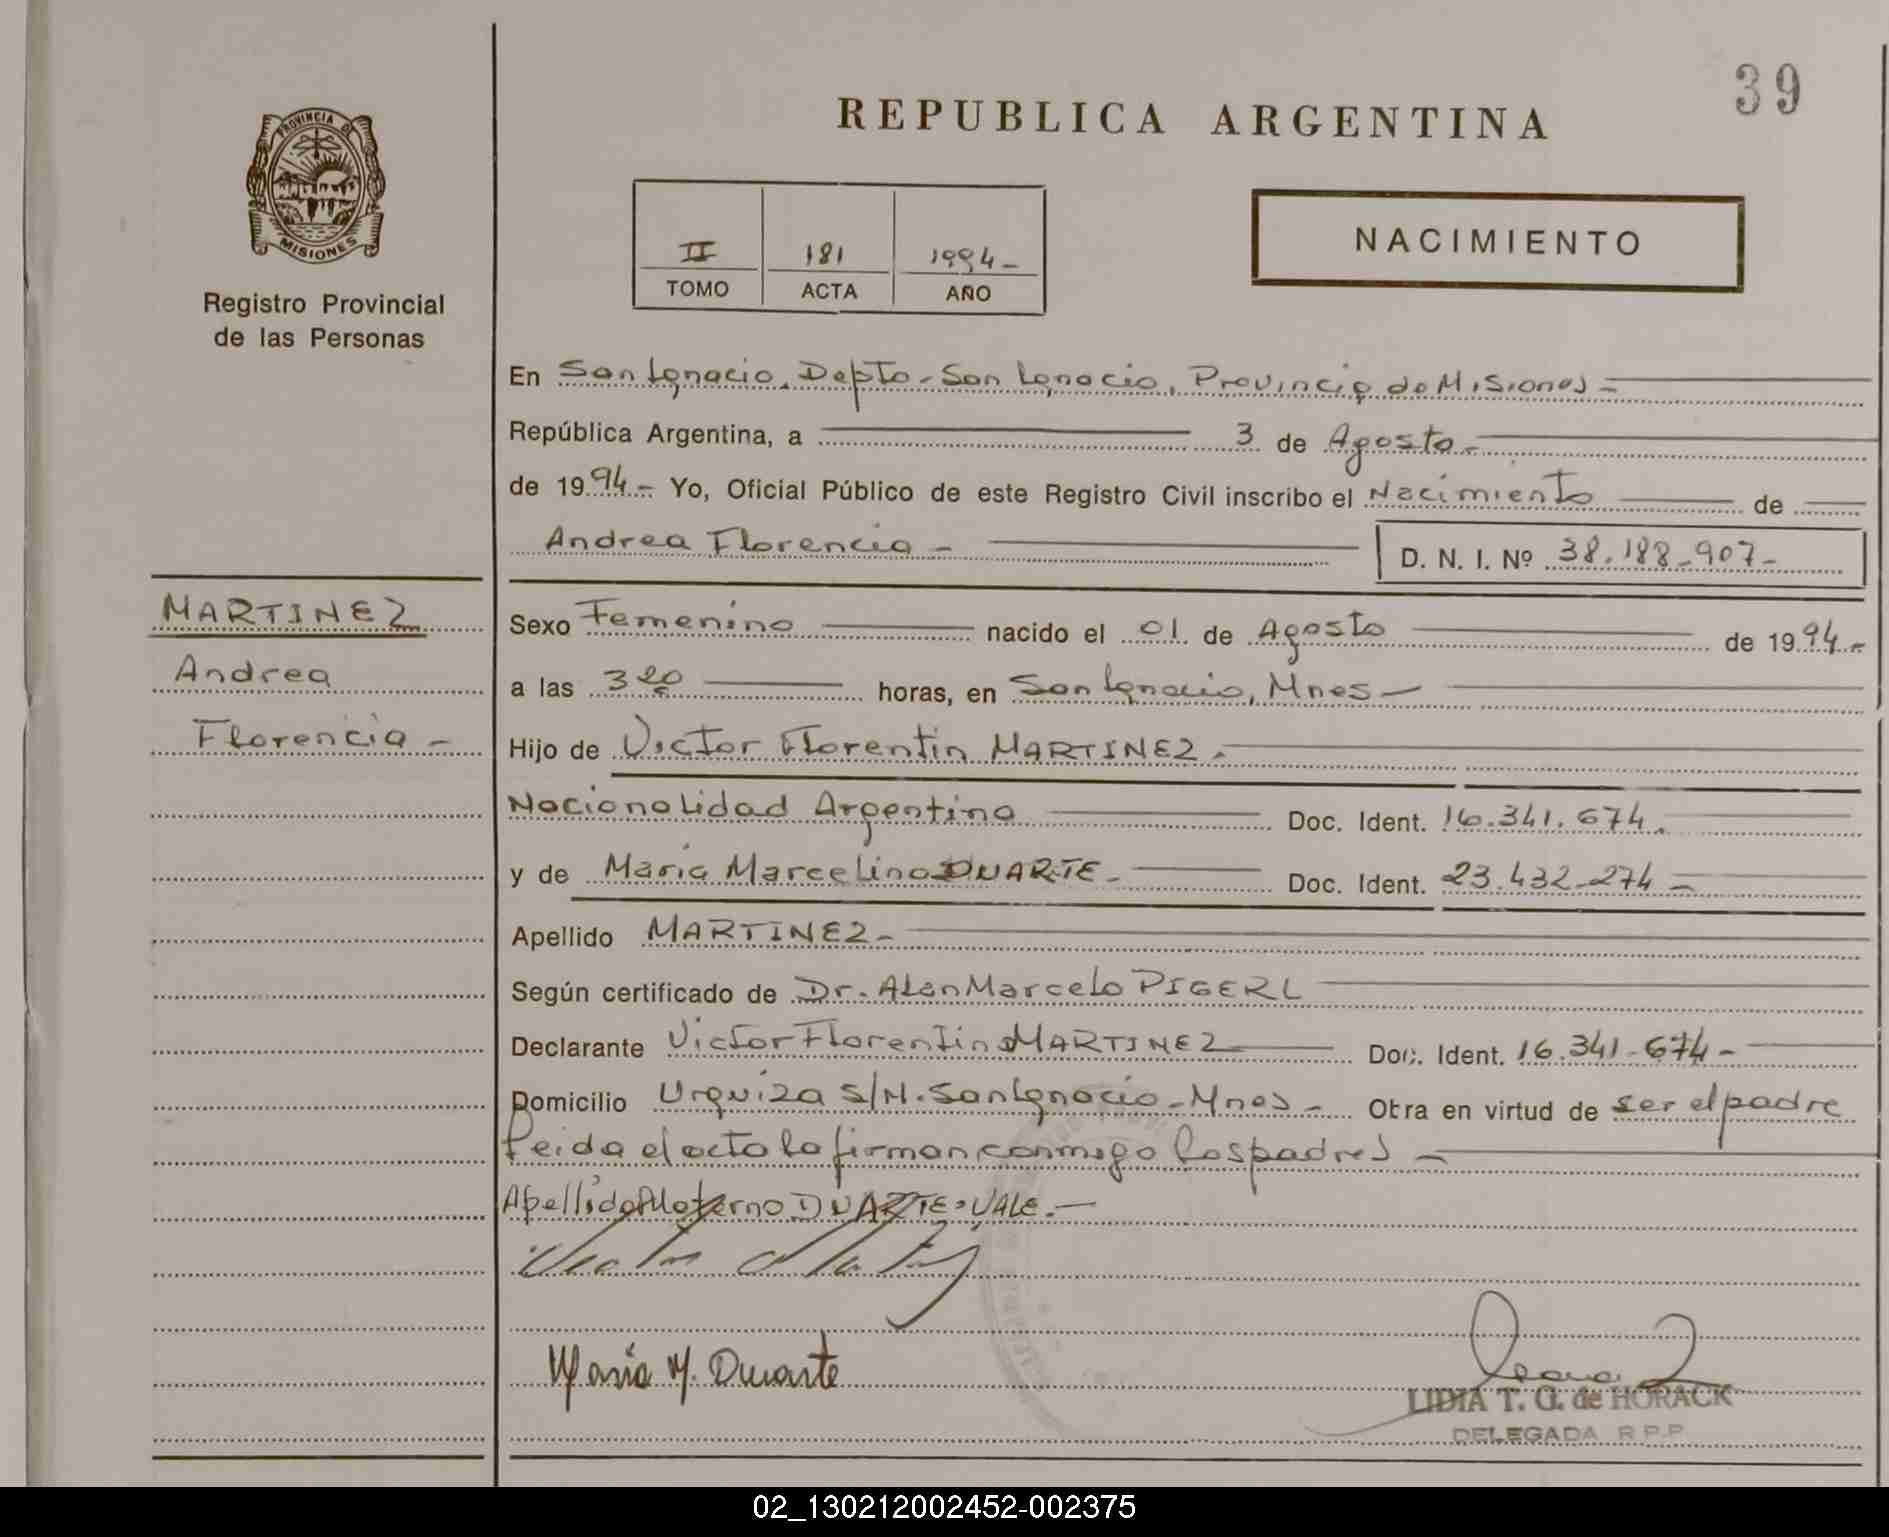 39
REPUBLICA ARGENTINA
PROVINCIA DE
MISIONES
Registro Provincial
de las Personas
II 181 1994-
TOMO ACTA AÑO
NACIMIENTO
En San Ignacio, Depto - San Ignacio, Provincia de Misiones -
República Argentina, a 3 de Agosto -
de 1994 - Yo, Oficial Público de este Registro Civil inscribo el Nacimiento de
Andrea Florencia - D. N. I. Nº 38.188-907-
MARTINEZ
Andrea
Florencia -
Sexo Femenino nacido el 01 de Agosto de 1994 -
a las 3 20 horas, en San Ignacio, Mnes -
Hijo de Victor Florentin MARTINEZ -
Nacionalidad Argentina Doc. Ident. 16.341.674.
y de Maria Marcelina DUARTE - Doc. Ident. 23.432-274 -
Apellido MARTINEZ -
Según certificado de Dr. Alan Marcelo PIGERL
Declarante Victor Florentin MARTINEZ Doc. Ident. 16.341-674 -
Domicilio Urquiza S/N. San Ignacio - Mnes - Otra en virtud de ser el padre
Leida el acta la firman conmigo los padres -
Apellido Materno DUARTE. VALE. -
Maria M. Duarte
LIDIA T. G. de HORACK
DELEGADA R.P.P.
02_130212002452-002375